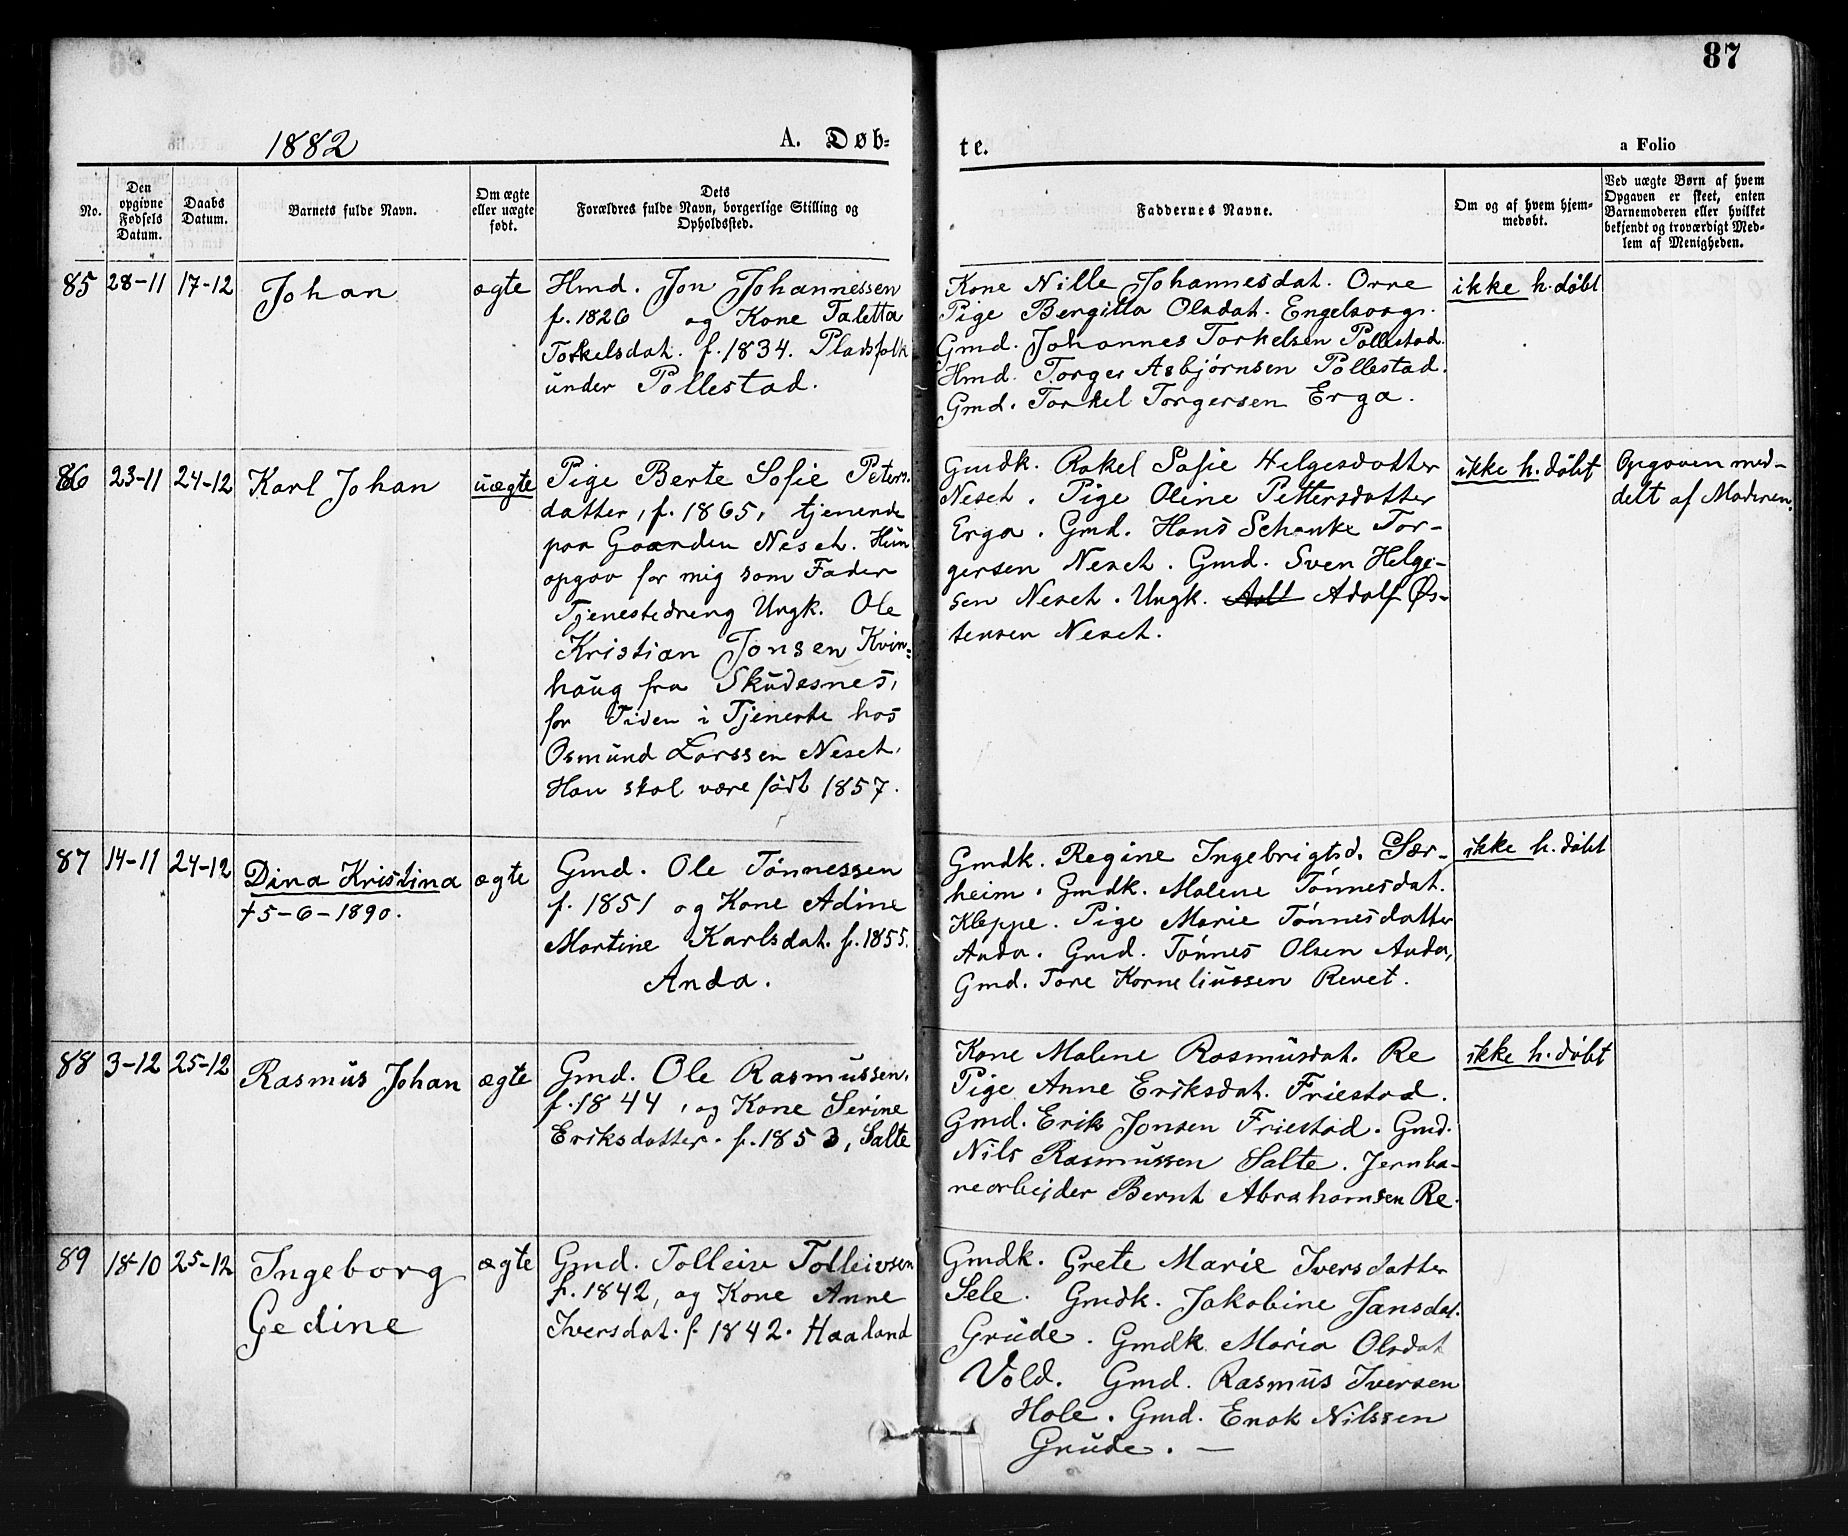 87
1882
A. Døb-
te.
a Folio
No.
Den opgivne Fødsels Datum.
Daabs Datum.
Barnets fulde Navn.
Om ægte eller uægte født.
Dets Forældres fulde Navn, borgerlige Stilling og Opholdssted.
Faddernes Navne.
Om og af hvem hjem-
medøbt.
Ved uægte Børn af hvem
Opgaven er skeet, enten
Barnemoderen eller hvilket
bekjendt og troværdigt Med-
lem af Menigheden.
85 28-11 17-12 Johan ægte
Hmd. Jon Johannessen
f. 1826 og Kone Taletta
Torkelsdat. f. 1834. Pladsfolk
under Pollestad.
Kone Nille Johannesdat. Orre
Pige Bergitta Olsdat. Engelsvog.
Gmd. Johannes Torkelsen Pollestad.
Hmd. Torger Asbjørnsen Pollestad.
Gmd. Torkel Torgersen Erga.
ikke h. døbt
86 23-11 24-12 Karl Johan uægte
Pige Berte Sofie Peters-
datter, f. 1865, tjenende
paa Gaarden Neset. Hun
opgav for mig som Fader
Tjenestedreng Ungk. Ole
Kristian Jonsen Kvin-
haug fra Skudesnes,
for Tiden i Tjeneste hos
Osmund Larssen Neset.
Han skal være født 1857.
Gmdk. Rakel Sofie Helgesdatter
Neset. Pige Oline Pettersdatter
Erga. Gmd. Hans Schanke Tor-
gersen Neset. Gmd. Sven Helge-
sen Neset. Ungk. Adolf Øs-
tensen Neset.
ikke h. døbt
Opgaven med-
delt af Moderen.
87 14-11 24-12 Dina Kristina ægte
† 5-6-1890.
Gmd. Ole Tønnessen
f. 1851 og Kone Adine
Martine Karlsdat. f. 1855.
Anda.
Gmdk. Regine Ingebrigtsd. Sær-
heim. Gmdk. Malene Tønnesdat.
Kleppe. Pige Marie Tønnesdatter
Anda. Gmd. Tønnes Olsen Anda,
Gmd. Tore Korneliussen Revet.
ikke h. døbt
88 3-12 25-12 Rasmus Johan ægte
Gmd. Ole Rasmussen,
f. 1844, og Kone Serine
Eriksdatter. f. 1853, Salte
Kone Malene Rasmusdat. Re
Pige Anne Eriksdat. Friestad.
Gmd. Erik Jonsen Friestad. Gmd.
Nils Rasmussen Salte. Jernba-
nearbejder Bernt Abrahamsen Re.
ikke h. døbt
89 18-10 25-12 Ingeborg ægte
Gedine
Gmd. Tolleiv Tolleivsen
f. 1842, og Kone Anne
Iversdat. f. 1842. Haaland
Gmdk. Grete Marie Iversdatter
Sele. Gmdk. Jakobine Jansdat.
Grude. Gmdk Maria Olsdat
Vold. Gmd. Rasmus Iversen
Hole. Gmd. Enok Nilssen
Grude. —